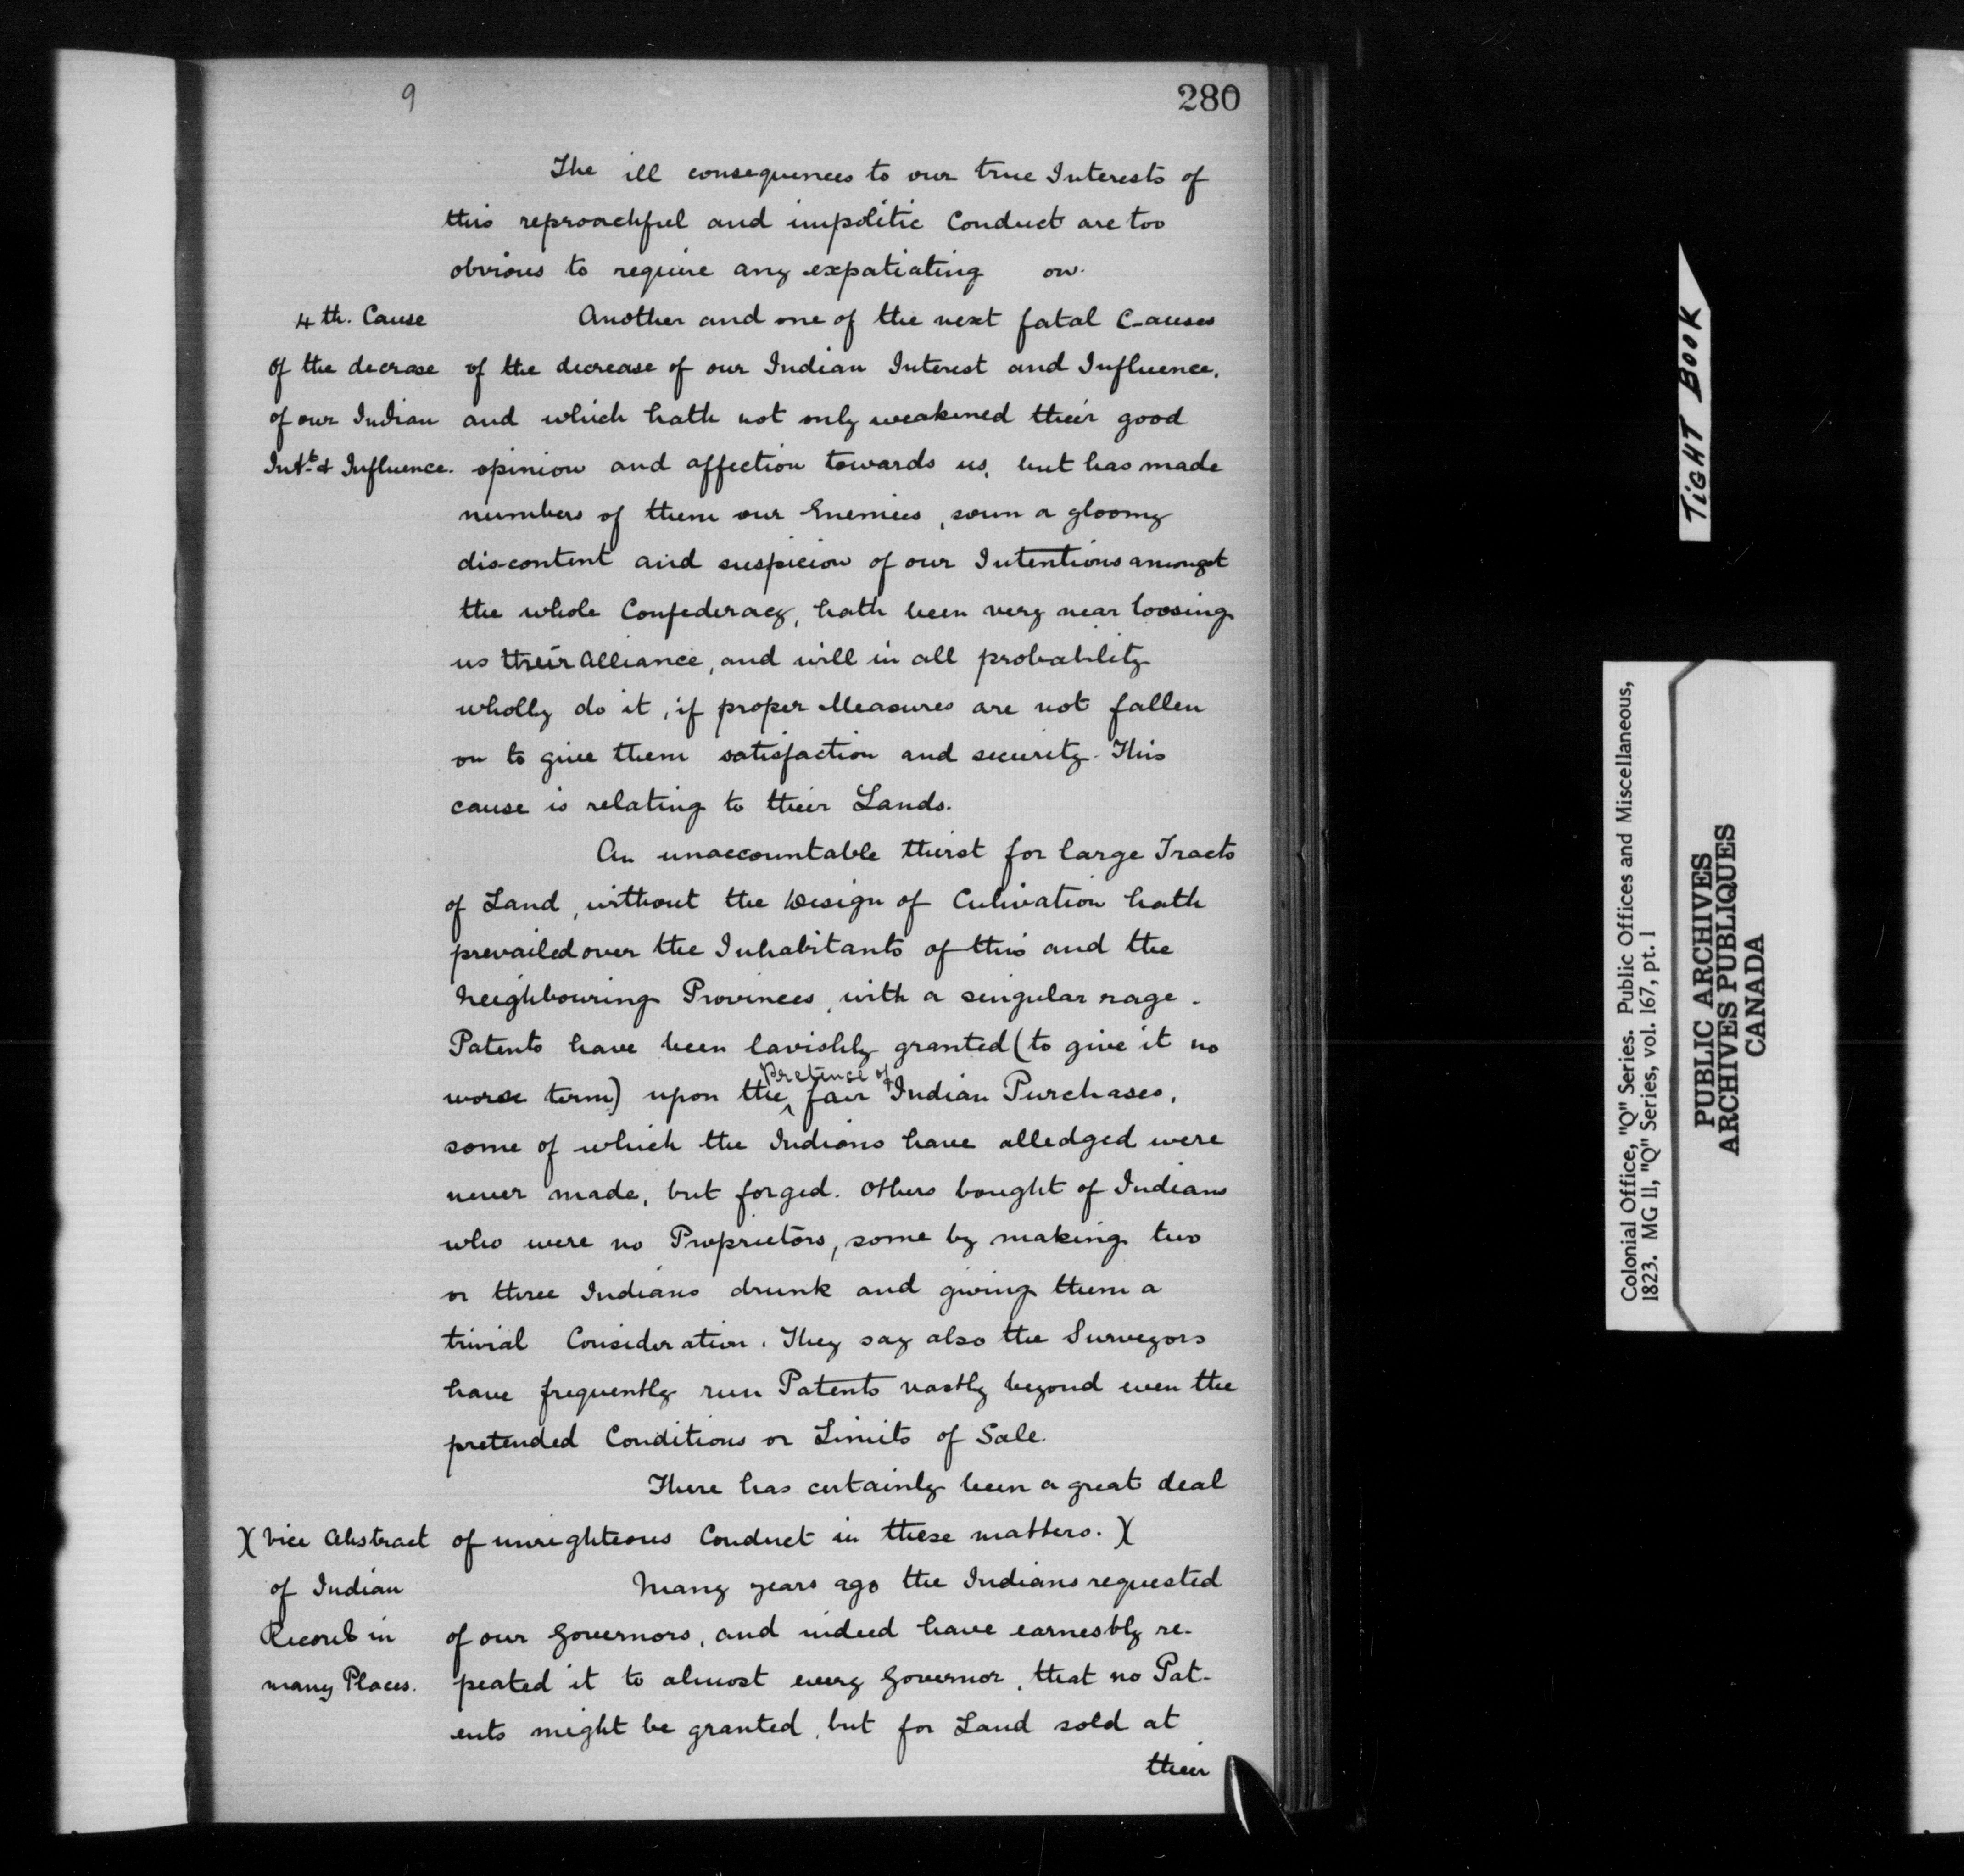 9
280
The ill consequences to our true Interests of
this reproachful and impolitic Conduct are too
obvious to require any expatiating on.
4th. Cause
of the decrase
of our Indian
Intt. & Influence.
Another and one of the next fatal Causes
of the decrease of our Indian Interest and Influence,
and which hath not only weakened their good
opinion and affection towards us, but has made
numbers of them our Enemies, sown a gloomy
discontent and suspicion of our Intentions amongst
the whole Confederacy, hath been very near loosing
us their Alliance, and will in all probability
wholly do it, if proper Measures are not fallen
on to give them satisfaction and security. This
cause is relating to their Lands.
An unaccountable thirst for large Tracts
of Land, without the Design of Culivation hath
prevailed over the Inhabitants of this and the
Neighbouring Provinces, with a singular rage.
Patents have been lavishly granted (to give it no
worse term) upon the ^ pretence of fair Indian Purchases,
some of which the Indians have alledged were
never made, but forged. Others bought of Indians
who were no Proprietors, some by making two
or three Indians drunk and giving them a
trivial Consideration. They say also the Surveyors
have frequently run Patents vastly beyond even the
pretended Conditions or Limits of Sale.
There has certainly been a great deal
of unrighteous Conduct in these matters. )(
)( Vice Abstract
of Indian
Records in
many Places.
Many years ago the Indians requested
of our Governors, and indeed have earnestly re-
peated it to almost every Governor, that no Pat-
ents might be granted, but for Land sold at
their
TiGHT BOOK
Colonial Office, "Q" Series. Public Offices and Miscellaneous,
1823. MG 11, "Q" Series, vol. 167, pt. 1
PUBLIC ARCHIVES
ARCHIVES PUBLIQUES
CANADA